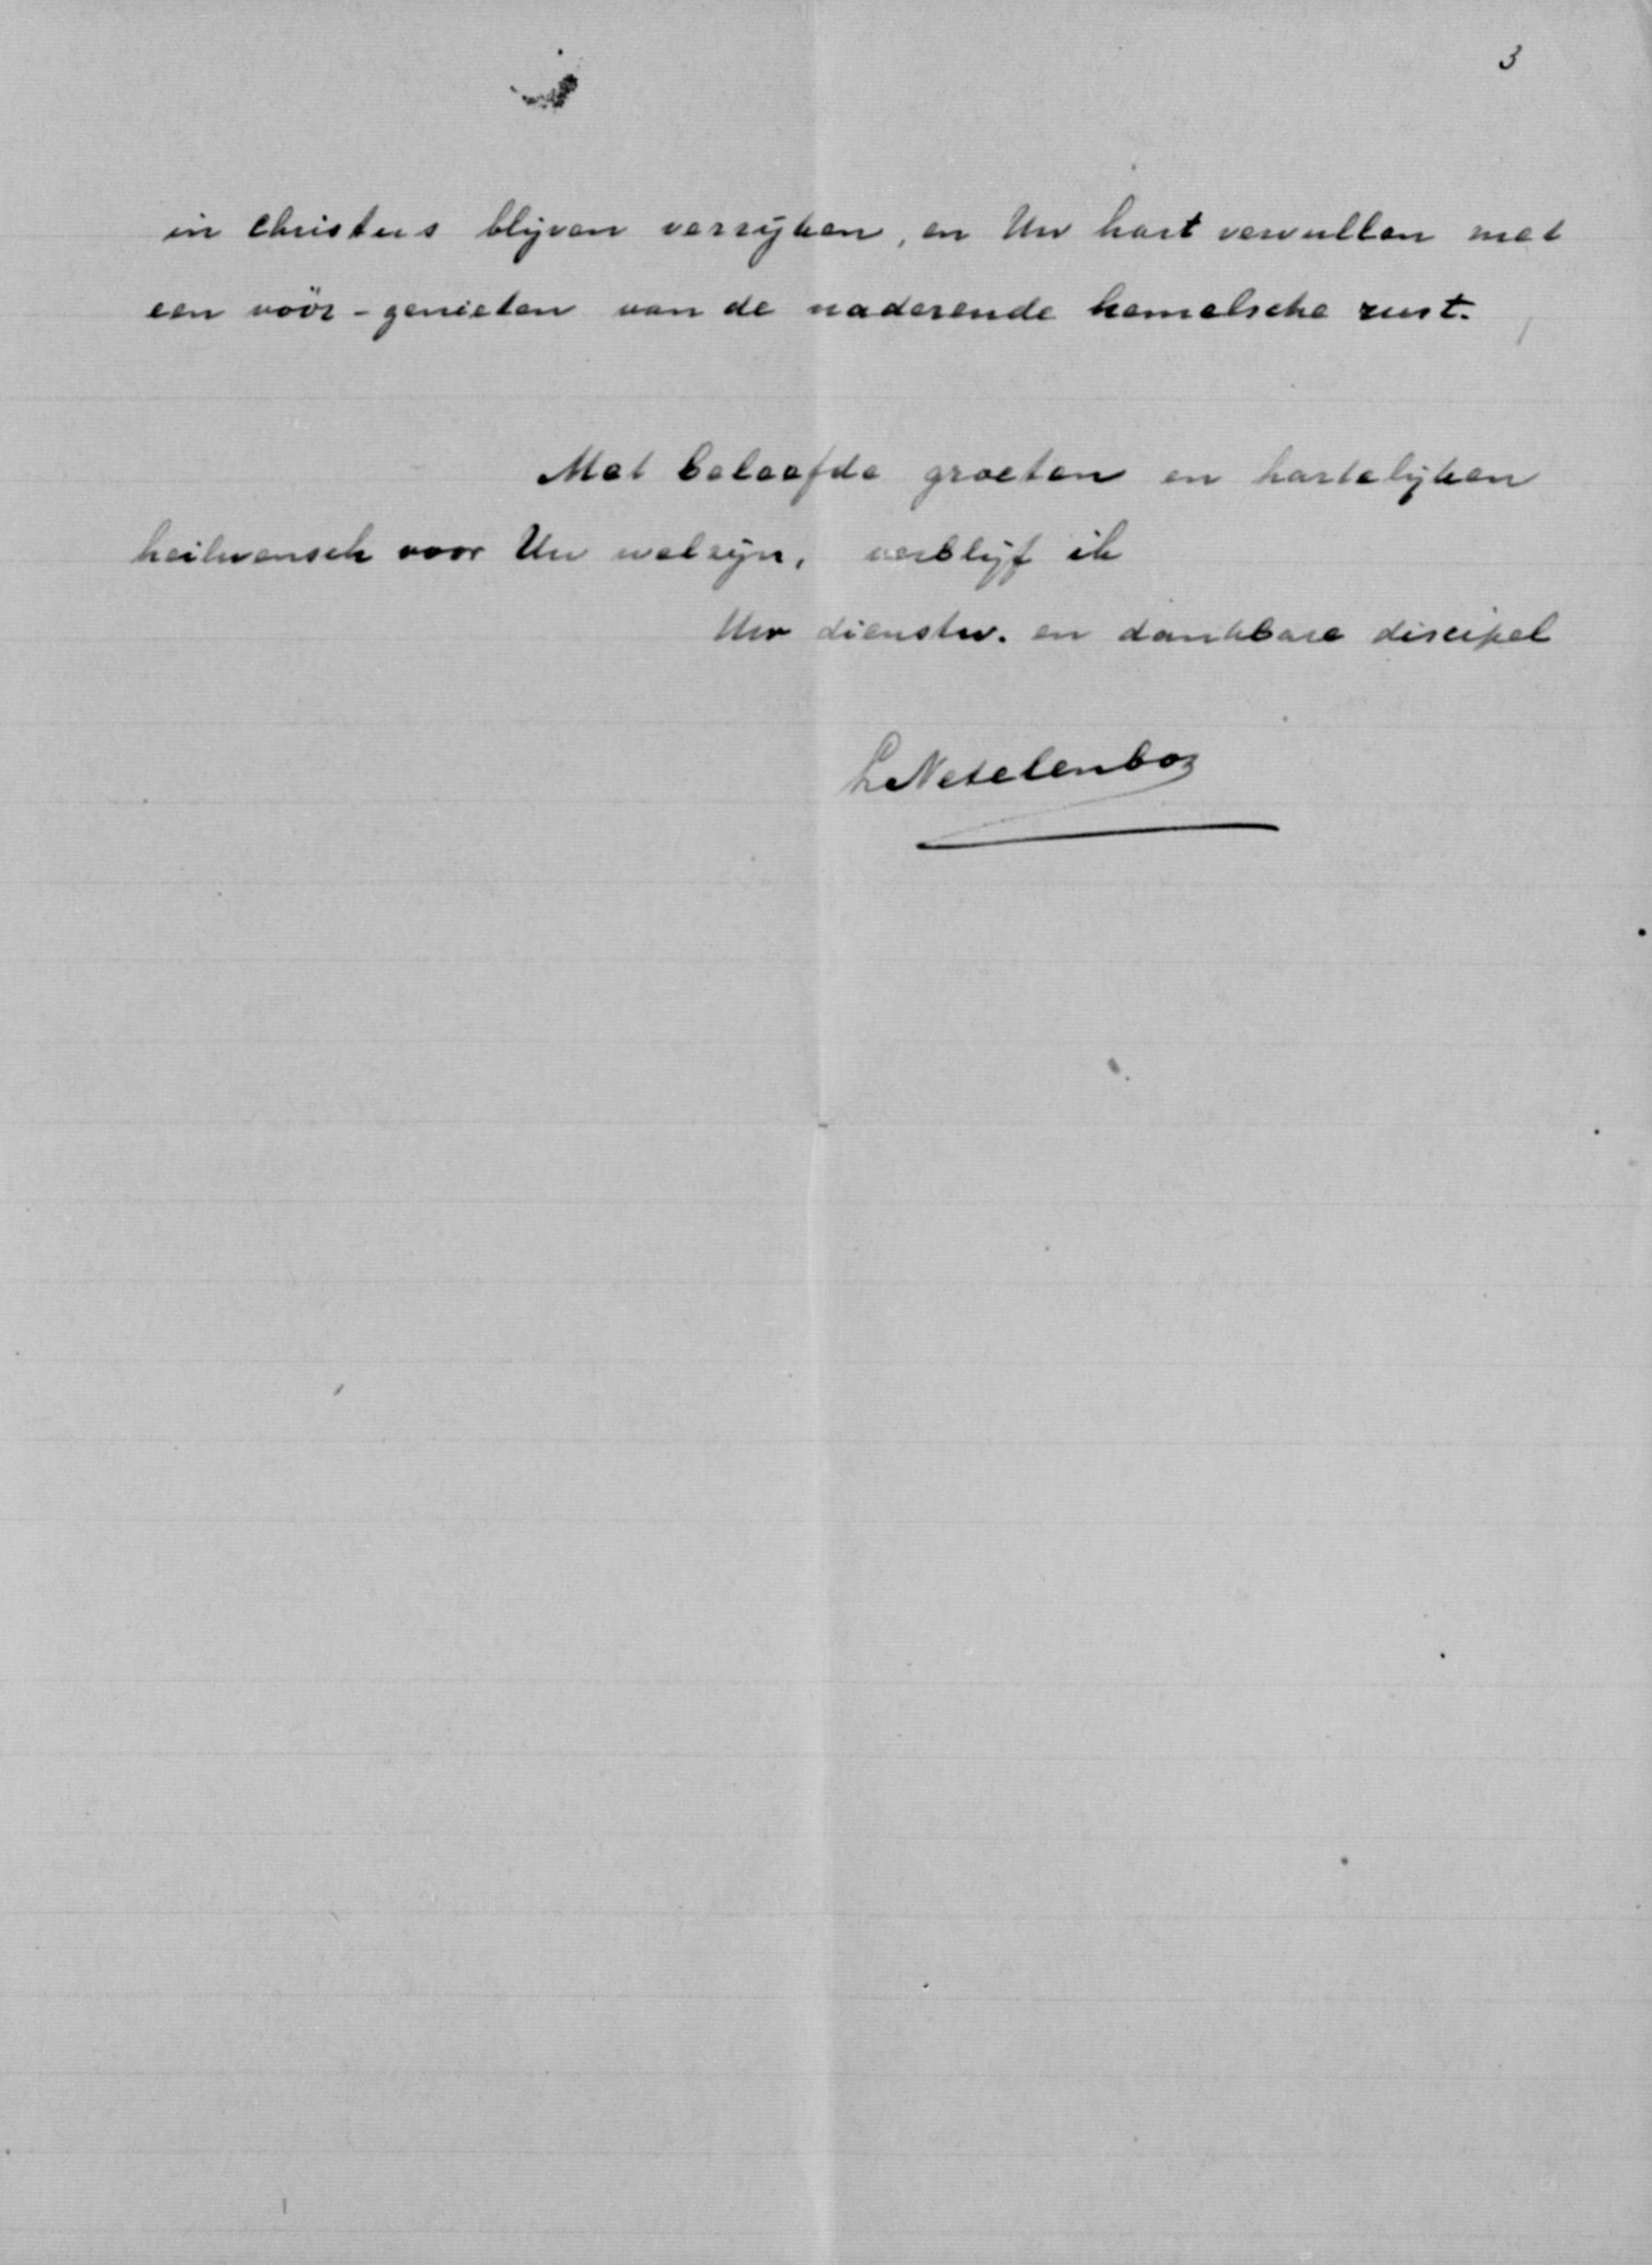 3
in Christus blijven verrijken, en Uw hart vervullen met
een vóór-genieten van de naderende hemelsche rust.
Met beleefde groeten en hartelijken
heilwensch voor Uw welzijn, verblijf ik
Uw dienstw. en dankbare discipel
L Netelenbos